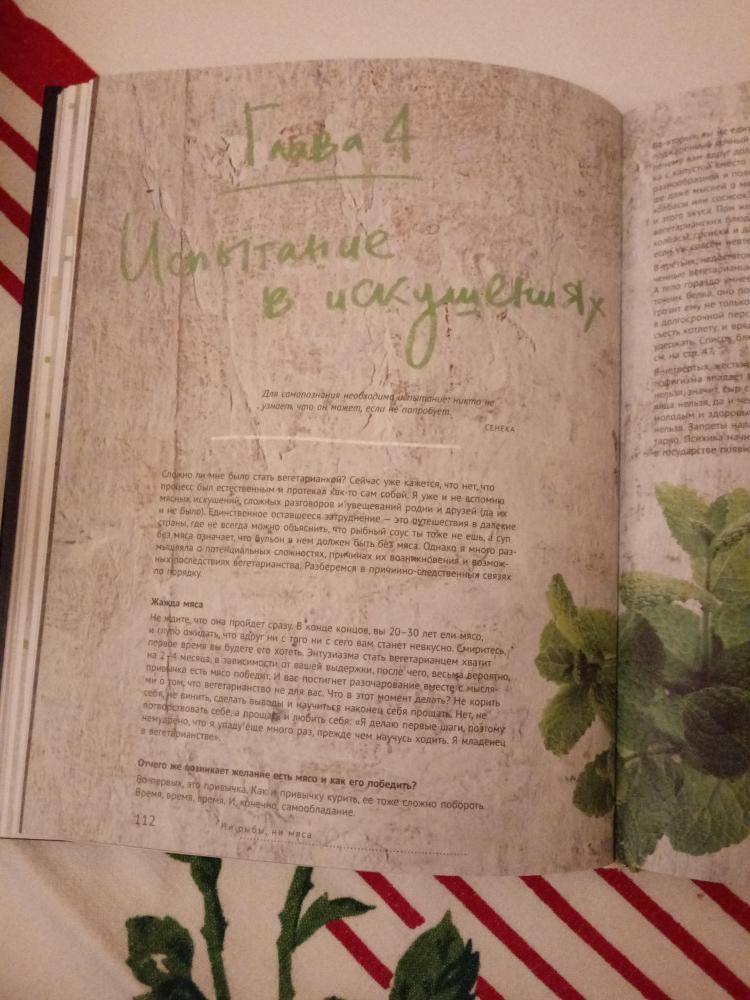 Глава 4
Испытание
в искушениях
Для самопознания необходимо испытание: никто не
узнает, что он может, если не попробует.
СЕНЕКА
Сложно ли мне было стать вегетарианкой? Сейчас уже кажется, что нет, что
процесс был естественным и протекал как-то сам собой. Я уже и не вспомню
мясных искушений, сложных разговоров и увещеваний родни и друзей (да их
и не было). Единственное оставшееся затруднение — это путешествия в далекие
страны, где не всегда можно объяснить, что рыбный соус ты тоже не ешь, а суп
без мяса означает, что бульон в нем должен быть без мяса. Однако я много раз-
мышляла о потенциальных сложностях, причинах их возникновения и возмож-
ных последствиях вегетарианства. Разберемся в причинно-следственных связях
по порядку.
Жажда мяса
Не ждите, что она пройдет сразу. В конце концов, вы 20–30 лет ели мясо,
и глупо ожидать, что вдруг ни с того ни с сего вам станет невкусно. Смиритесь,
первое время вы будете его хотеть. Энтузиазма стать вегетарианцем хватит
на 2–4 месяца, в зависимости от вашей выдержки, после чего, весьма вероятно,
привычка есть мясо победит. И вас постигнет разочарование вместе с мысля-
ми о том, что вегетарианство не для вас. Что в этот момент делать? Не корить
себя, не винить, сделать выводы и научиться наконец себя прощать. Нет, не
потворствовать себе, а прощать и любить себя: «Я делаю первые шаги, поэтому
немудрено, что я упаду еще много раз, прежде чем научусь ходить. Я младенец
в вегетарианстве».
Отчего же возникает желание есть мясо и как его победить?
Во-первых, это привычка. Как и привычку курить, ее тоже сложно побороть.
Время, время, время. И, конечно, самообладание.
112
Ни рыбы, ни мяса
Во-вторых, вы не
почему вам вдруг
ка с капустой вместо
разнообразней и
ше даже мыслей о
колбасы или сосисок
и этого вкуса. При
вегетарианских блюд
колбасы, сосиски и
если уж совсем
В-третьих, недостаток
ченные вегетариан
А тело гораздо умнее
точник белка, оно
грозит ему не только
в долгосрочной
съесть котлету, и
удержать. Список
см. на стр. 47.
В-четвертых,
пофигизма впадает
нельзя, значит, сыр
яйца нельзя, да и
молодым и здоровым
нельзя. Запреты
тарно. Психика
в государстве